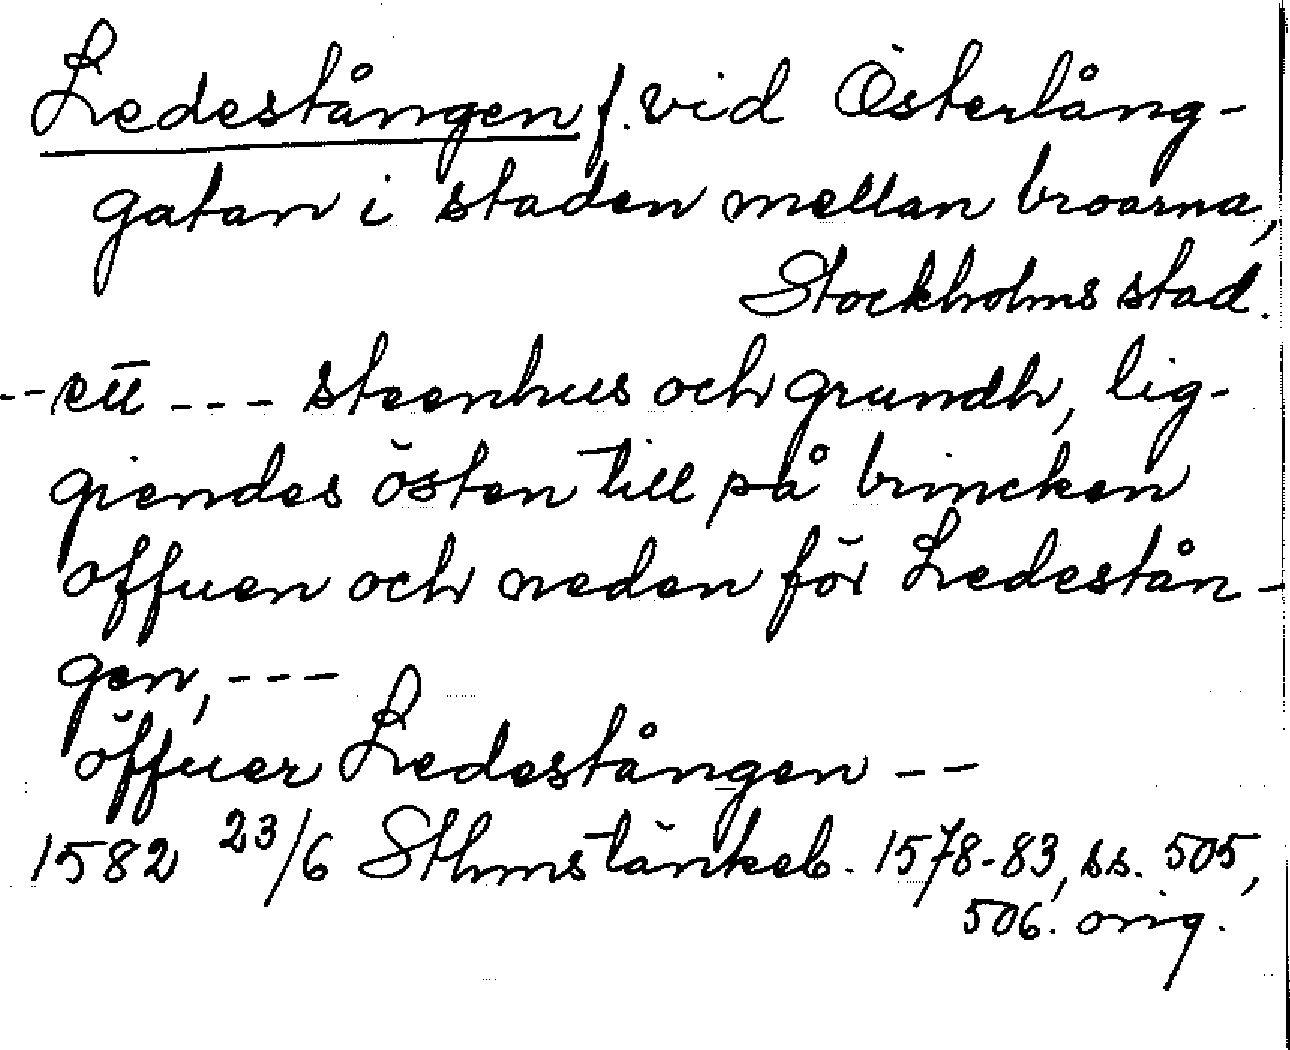 Ledestången f. vid Österlång-
gatan i staden mellan broarna,
Stockholms stad.
-- ett --- steenhus och grundh, lig-
giendes östen till på brincken
offuen och neden för Ledestån-
gen, ---
öffuer Ledestången --
1582 23/6 Sthms tänkeb. 1578-83, ss. 505,
506. orig.